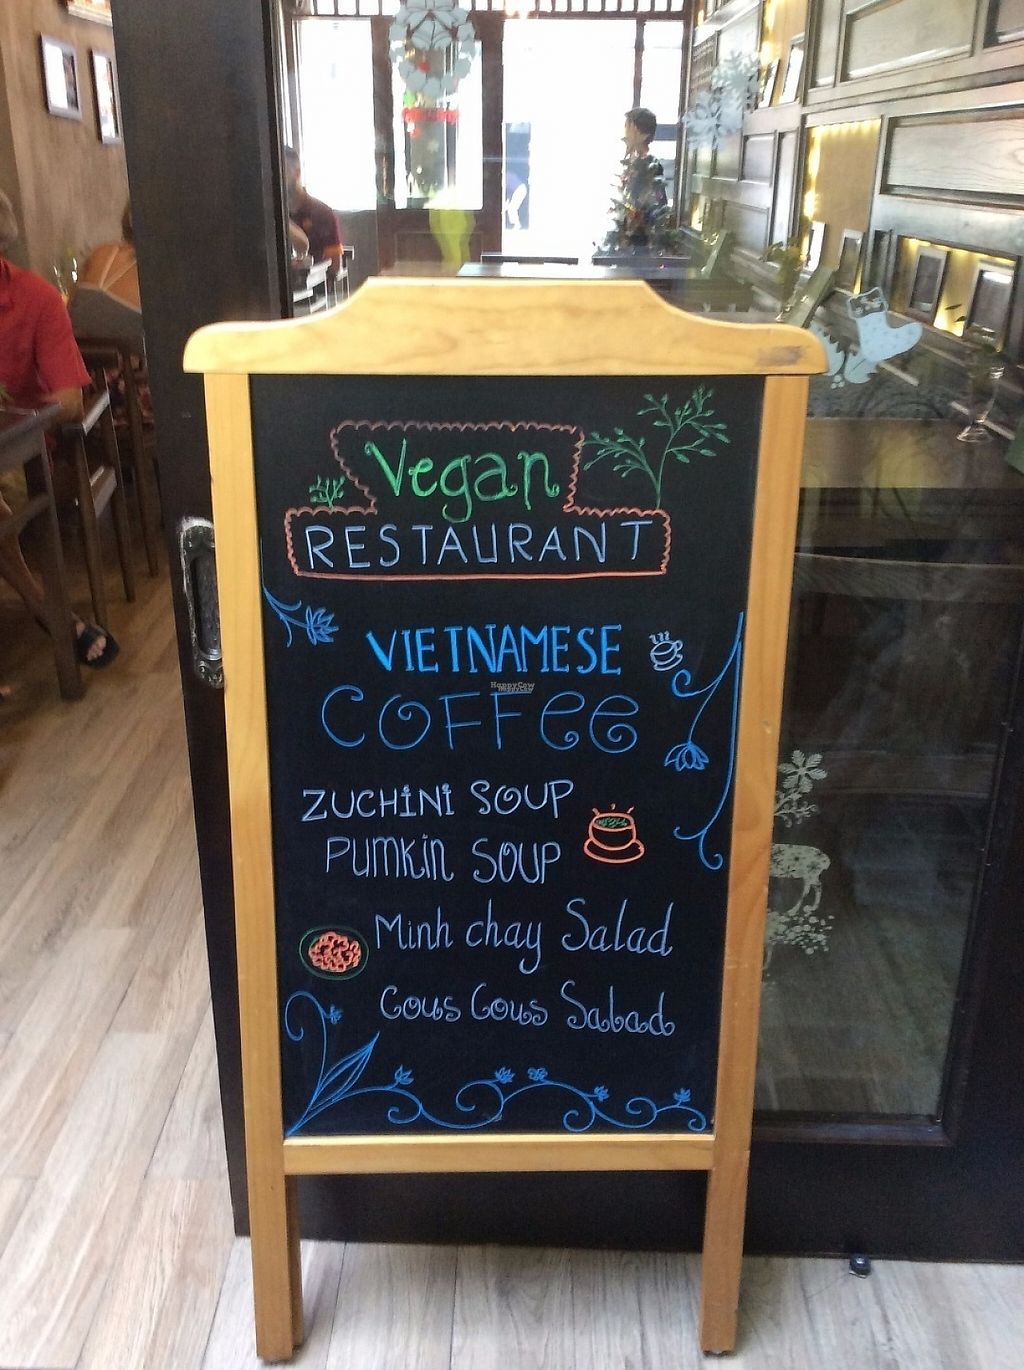 Vegan
RESTAURANT
VIETNAMESE
COFFee
HappyCow
HappyCow
ZUCHINI SOUP
PUMKIN SOUP
Minh chay Salad
Cous Cous Salad